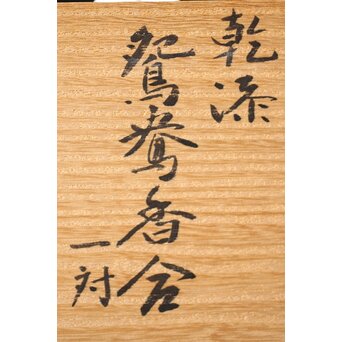 乾漆
鴛鴦香合
一対